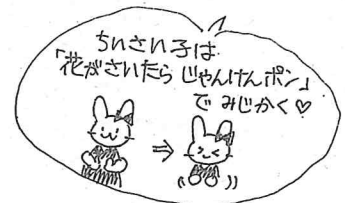 ちいさい子は
「花がさいたら じゃんけんポン」
で みじかく♡
⇒